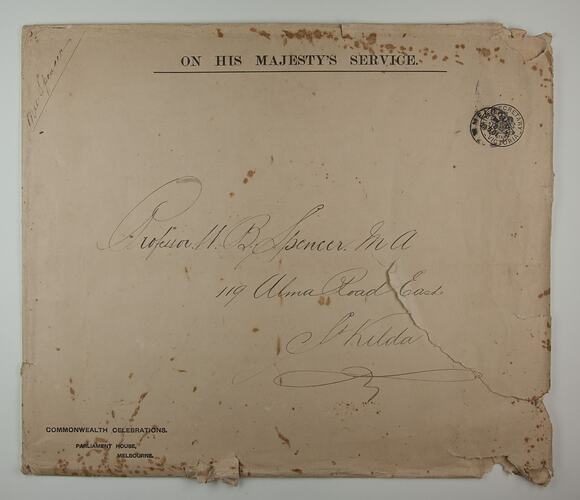 ON HIS MAJESTY'S SERVICE.
SECRETARY
VICTORIA
Professor W. B. Spencer. M A
119 Alma Road East
St Kilda
COMMONWEALTH CELEBRATIONS.
PARLIAMENT HOUSE,
MELBOURNE.